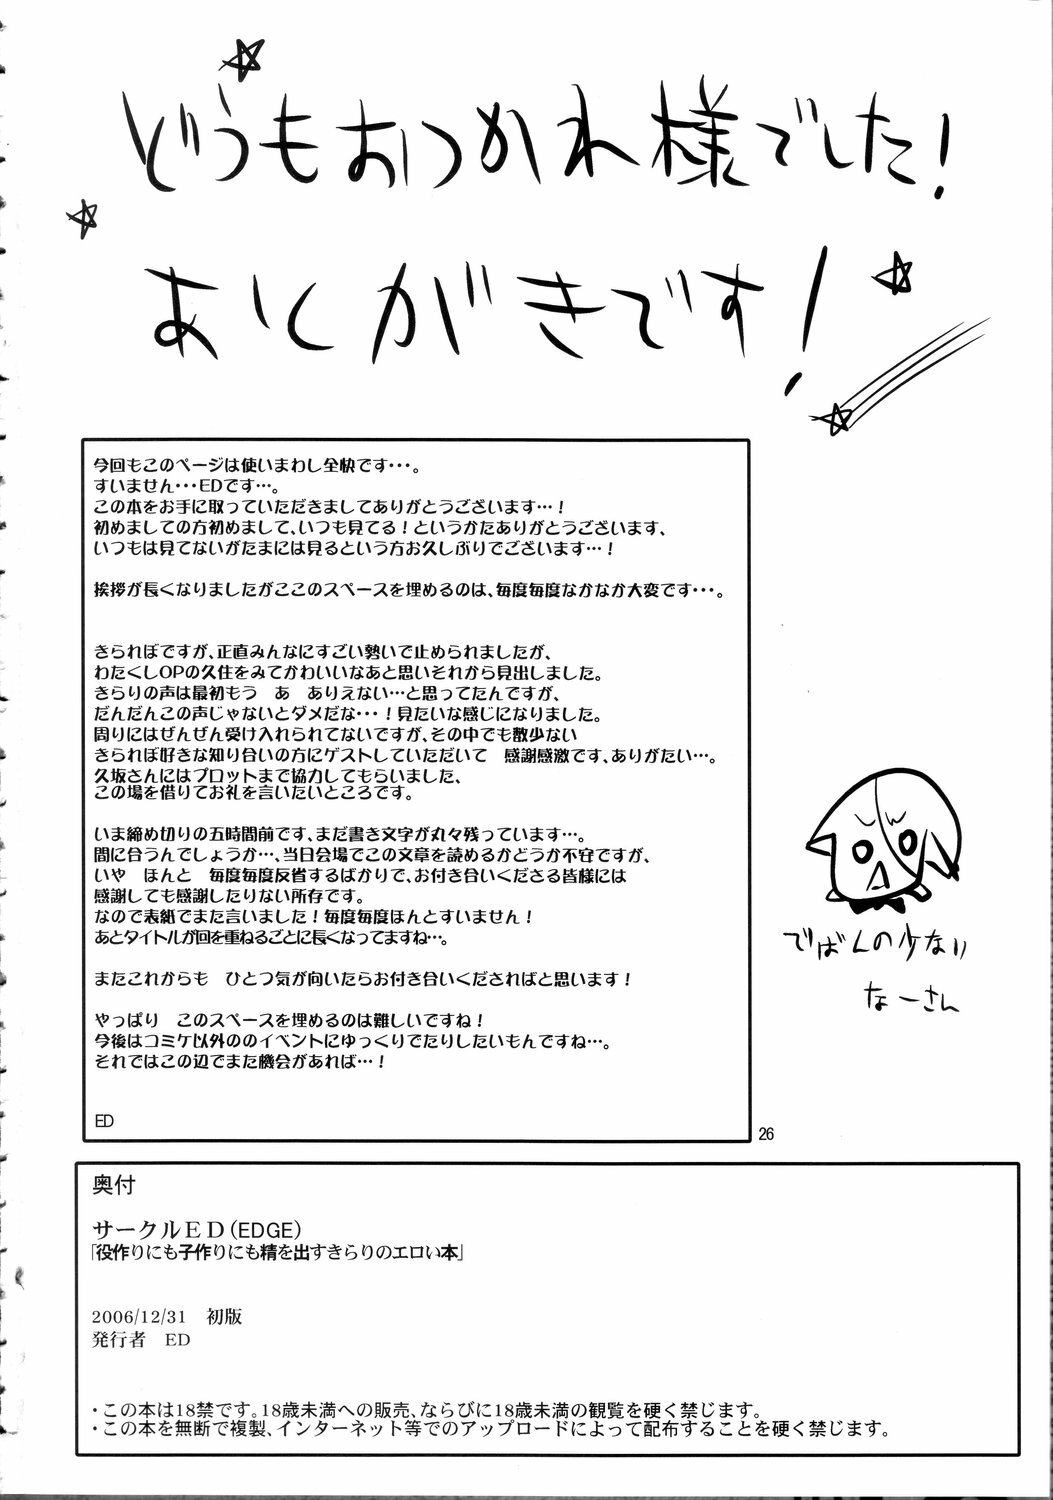 どうもおつかれ様でした!
あとがきです!
今回もこのページは使いまわし全快です・・・。
すいません・・・EDです…。
この本をお手に取っていただきましてありがとうございます…！
初めましての方初めまして、いつも見てる！というかたありがとうございます、
いつもは見てないがたまには見るという方お久しぶりでございます…！
挨拶が長くなりましたがここのスペースを埋めるのは、毎度毎度なかなか大変です・・・。
きられぼですが、正直みんなにすごい勢いで止められましたが、
わたくしOPの久住をみてかわいいなあと思いそれから見出しました。
きらりの声は最初もう　あ　ありえない…と思ってたんですが、
だんだんこの声じゃないとダメだな・・・！見たいな感じになりました。
周りにはぜんぜん受け入れられてないですが、その中でも数少ない
きられぼ好きな知り合いの方にゲストしていただいて　感謝感激です、ありがたい…。
久坂さんにはプロットまで協力してもらいました、
この場を借りてお礼を言いたいところです。
いま締め切りの五時間前です、まだ書き文字が丸々残っています…。
間に合うんでしょうか…、当日会場でこの文章を読めるかどうか不安ですが、
いや　ほんと　毎度毎度反省するばかりで、お付き合いくださる皆様には
感謝しても感謝したりない所存です。
なので表紙でまた言いました！毎度毎度ほんとすいません！
あとタイトルが回を重ねるごとに長くなってますね…。
またこれからも　ひとつ気が向いたらお付き合いくださればと思います！
やっぱり　このスペースを埋めるのは難しいですね！
今後はコミケ以外ののイベントにゆっくりでたりしたいもんですね…。
それではこの辺でまた機会があれば…！
ED
でばんの少ない
なーさん
26
奥付
サークルED(EDGE)
「役作りにも子作りにも精を出すきらりのエロい本」
2006/12/31　初版
発行者　ED
・この本は18禁です。18歳未満への販売、ならびに18歳未満の観覧を硬く禁じます。
・この本を無断で複製、インターネット等でのアップロードによって配布することを硬く禁じます。